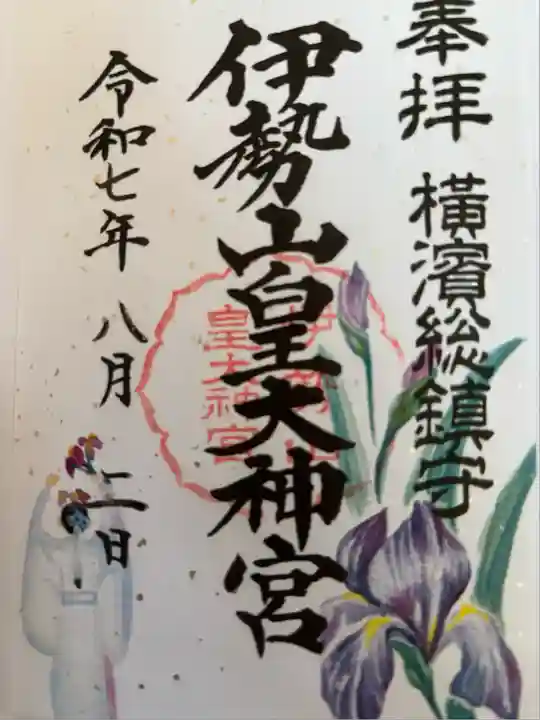 奉拝
横濱総鎮守
伊勢山皇大神宮
伊勢山
皇大神宮
令和七年 八月 二日